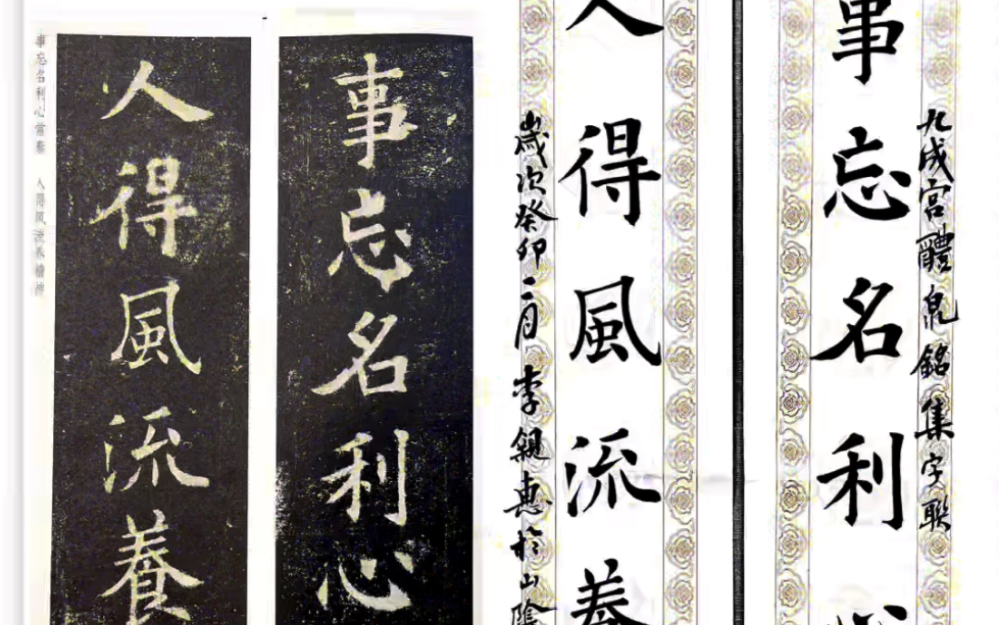 九成宮醴泉銘集字聯
事忘名利心
人得風流養
歲次癸卯二月李親惠於山陰
事忘名利心
人得風流養
事忘名利心 人得風流養